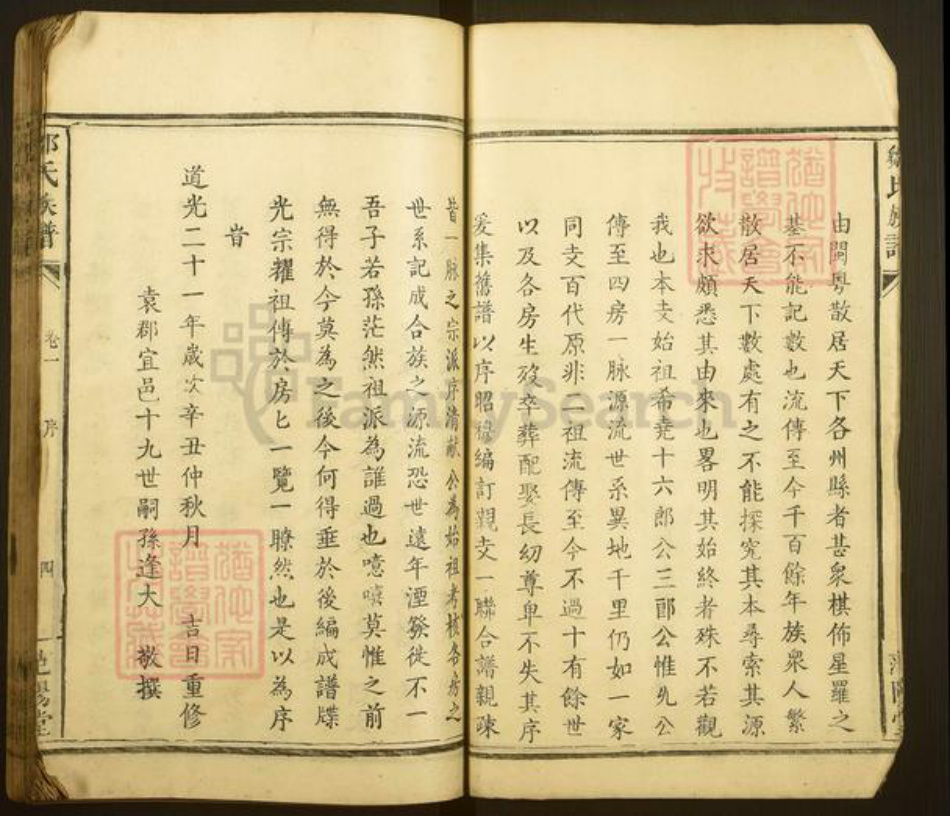 由閩粵散居天下各州縣者甚衆棋佈星羅之
基不能記數也流傳至今千百餘年族衆人繁
散居天下數處有之不能探究其本尋索其源
欲求頗悉其由來也畧明其始終者殊不若觀
我也本支始祖希堯十六郎公三郎公惟公
傳至四房一脉源流世系異地千里仍如一家
同支百代原非二祖流傳至今不過十有餘世
以及各房生歿卒葬配娶長幼尊卑不失其序
爰集舊譜以序昭穆編訂親支一聯合譜親疎
皆一脉之宗派序清獻公為始祖考核各房之
世系記成合族之源流恐世遠年湮發徙不一
吾子若孫茫然祖派為誰過也噫嘻莫惟之前
無得於今莫為之後今何得垂於後編成譜牒
光宗耀祖傳於房匕一覽一瞭然也是以為序
旹
道光二十一年歲次辛丑仲秋月 吉日重修
袁郡宜邑十九世嗣孫逢大 敬撰
氏族譜
卷一 序 四
堂
FamilySearch